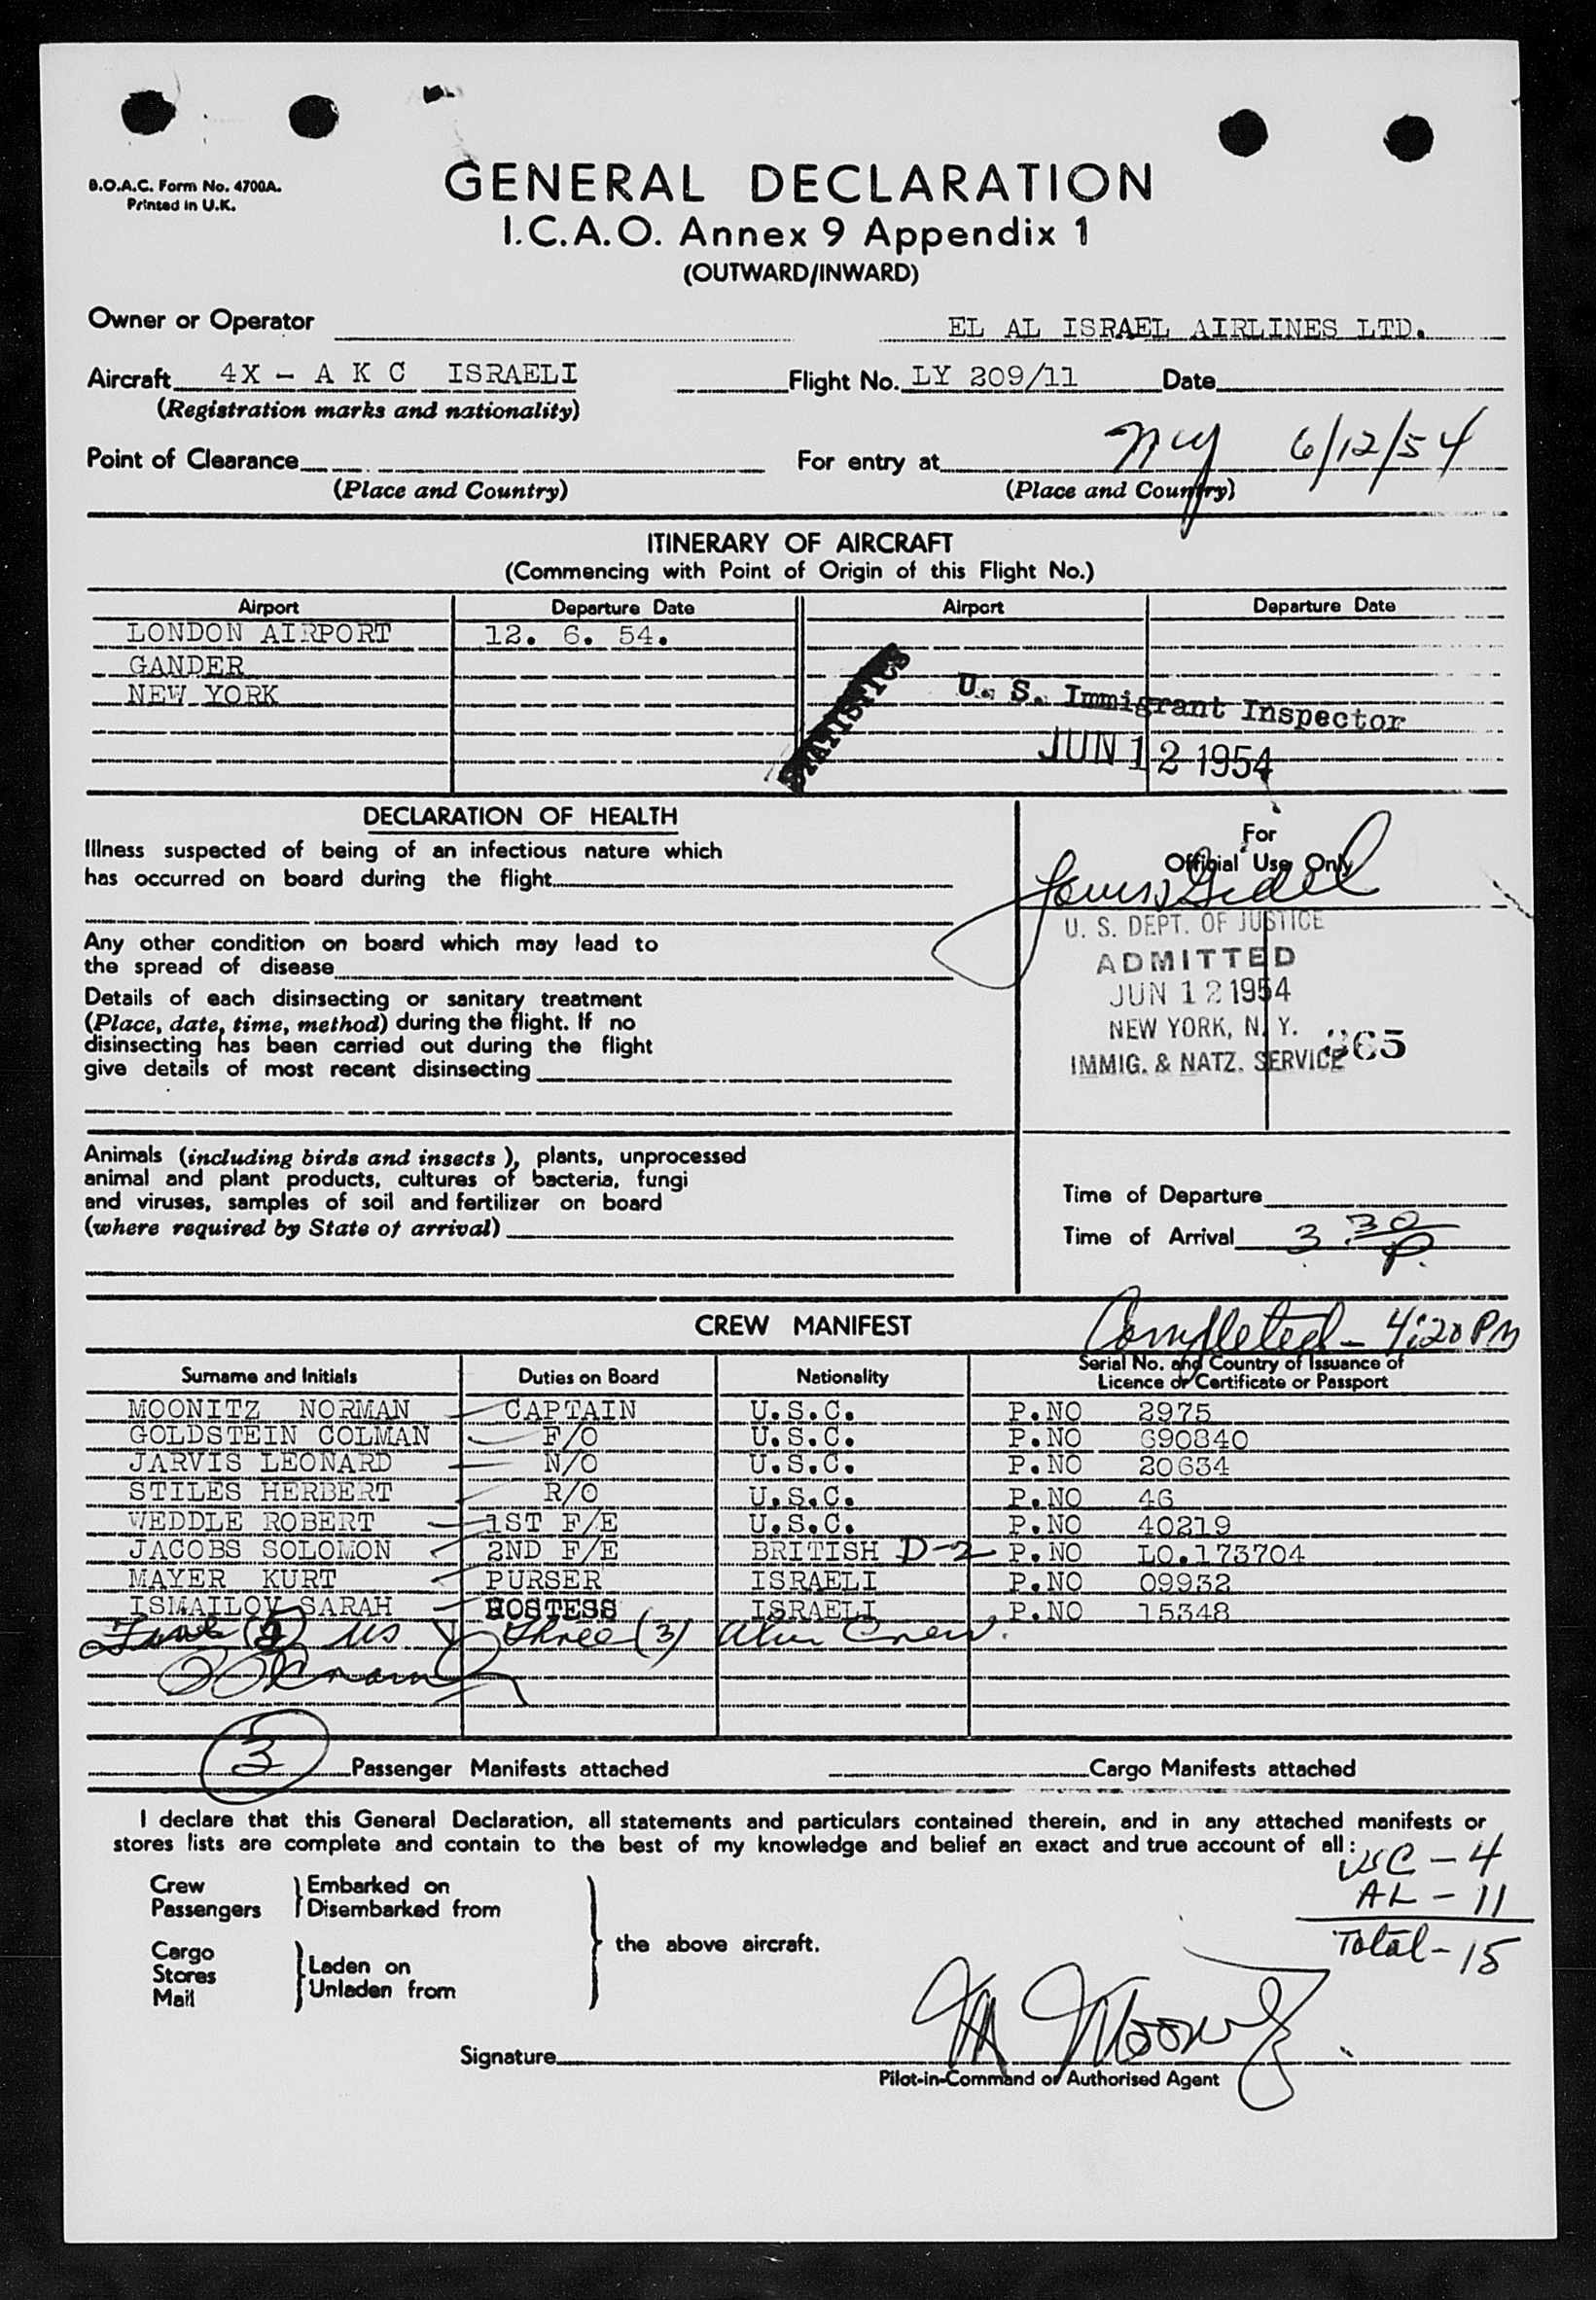 B.O.A.C. Form No. 4700A.
Printed in U.K.
GENERAL DECLARATION
I.C.A.O. Annex 9 Appendix 1
(OUTWARD/INWARD)
Owner or Operator EL AL ISRAEL AIRLINES LTD.
Aircraft 4X - A K C ISRAELI Flight No. LY 209/11 Date
(Registration marks and nationality)
Point of Clearance For entry at NY 6/12/54
(Place and Country) (Place and Country)
ITINERARY OF AIRCRAFT
(Commencing with Point of Origin of this Flight No.)
Airport Departure Date Airport Departure Date
LONDON AIRPORT 12. 6. 54.
GANDER
NEW YORK
STATISTICS
U. S. Immigrant Inspector
JUN 12 1954
DECLARATION OF HEALTH
Illness suspected of being of an infectious nature which
has occurred on board during the flight
Any other condition on board which may lead to
the spread of disease
Details of each disinsecting or sanitary treatment
(Place, date, time, method) during the flight. If no
disinsecting has been carried out during the flight
give details of most recent disinsecting
For
Official Use Only
U. S. DEPT. OF JUSTICE
ADMITTED
JUN 12 1954
NEW YORK, N. Y.
IMMIG. & NATZ. SERVICE
Animals (including birds and insects), plants, unprocessed
animal and plant products, cultures of bacteria, fungi
and viruses, samples of soil and fertilizer on board
(where required by State of arrival)
Time of Departure
Time of Arrival 3 30 P.
CREW MANIFEST Completed - 4:20 PM
Surname and Initials Duties on Board Nationality Serial No. and Country of Issuance of
Licence or Certificate or Passport
MOONITZ NORMAN CAPTAIN U.S.C. P.NO 2975
GOLDSTEIN COLMAN F/O U.S.C. P.NO 690840
JARVIS LEONARD N/O U.S.C. P.NO 20634
STILES HERBERT R/O U.S.C. P.NO 46
WEDDLE ROBERT 1ST F/E U.S.C. P.NO 40219
JACOBS SOLOMON 2ND F/E BRITISH D-2 P.NO LO.173704
MAYER KURT PURSER ISRAELI P.NO 09932
ISMAILOV SARAH HOSTESS ISRAELI P.NO 15348
Five (5) US Three (3) Alien Crew.
3 Passenger Manifests attached Cargo Manifests attached
I declare that this General Declaration, all statements and particulars contained therein, and in any attached manifests or
stores lists are complete and contain to the best of my knowledge and belief an exact and true account of all:
USC - 4
AL - 11
Total - 15
Crew Embarked on
Passengers Disembarked from
the above aircraft.
Cargo
Stores Laden on
Mail Unladen from
Signature
Pilot-in-Command or Authorised Agent